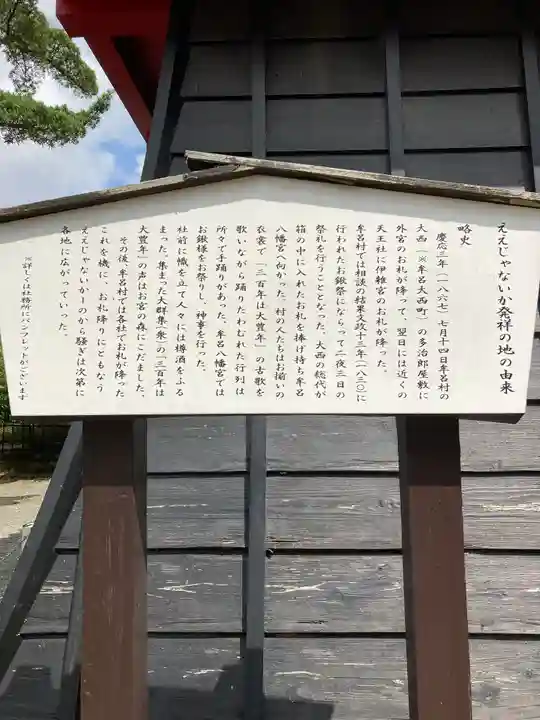 ええじゃないか発祥の地の由来
略史
慶応三年(一八六七)七月十四日牟呂村の
大西(※牟呂大西町)の多治郎屋敷に
外宮のお札が降って、翌日には近くの
天王社に伊雑宮のお札が降った。
牟呂村では相談の結果文政十三年(一八三〇)に
行われたお鍬祭にならって二夜三日の
祭礼を行うこととなった。大西の総代が
箱の中に入れたお札を捧げ持ち牟呂
八幡宮へ向かった。村の人たちはお揃いの
衣裳で「三百年は大豊年」の古歌を
歌いながら踊りたわむれた行列は
所々で手踊りがあった。牟呂八幡宮では
お鍬様をお祭りし、神事を行った。
社前に幟を立て人々には樽酒をふる
まった。集まった大群集(衆)の「三百年は
大豊年」の声はお宮の森にこだました。
その後、牟呂村では各社でお札が降った
これを機に、お札降りにともなう
ええじゃないか、のから騒ぎは次第に
各地に広がっていった。
※詳しくは社務所にパンフレットがございます